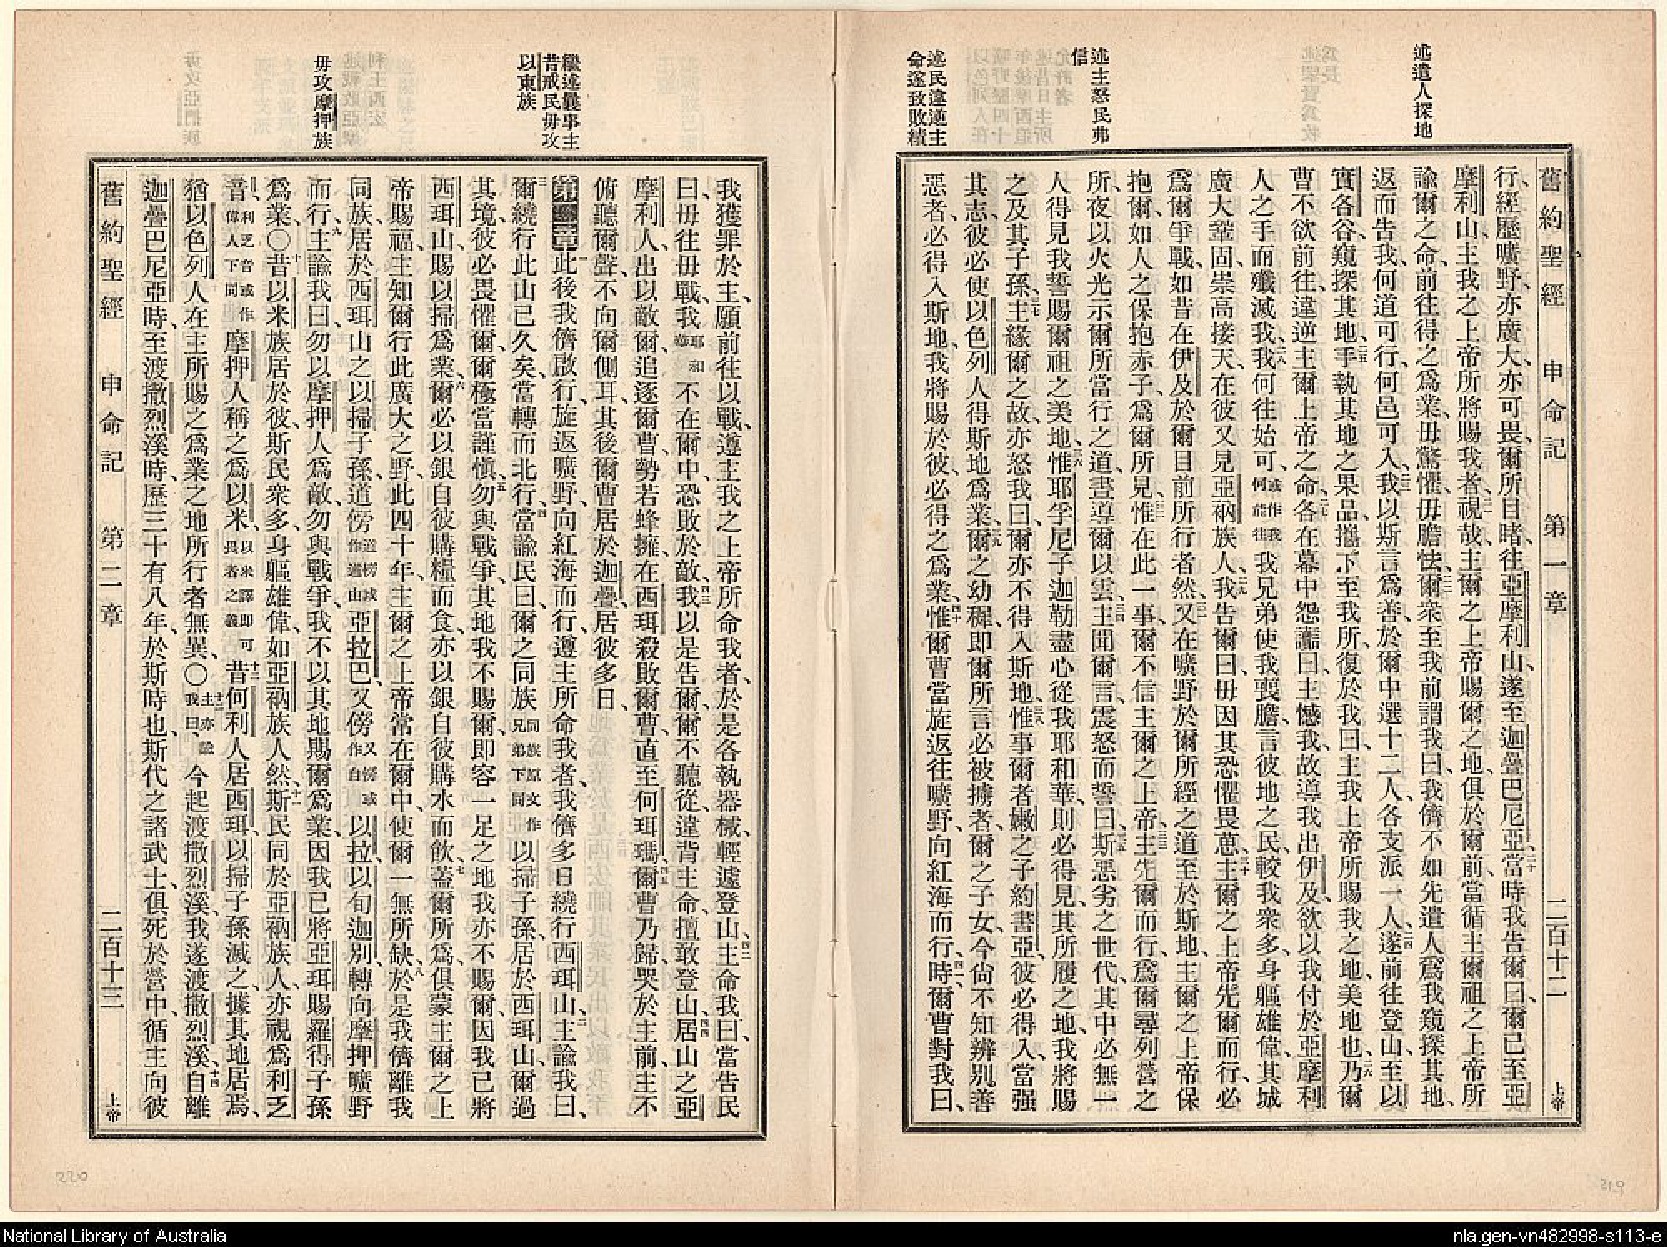 述遣人探地
述主怒民弗
信
述民違逆主
命遂致敗績
舊約聖經 申命記 第一章 二百十二 上帝
行經歷曠野亦廣大亦可畏爾所目睹往亞摩利山遂至迦疊巴尼亞二十當時我告爾曰爾已至亞
摩利山主我之上帝所將賜我者視哉主爾之上帝賜爾之地俱於爾前當循主爾祖之上帝所
諭爾之命前往得之爲業毋驚懼毋膽怯爾衆至我前謂我曰我儕不如先遣人爲我窺探其地
返而告我何道可行何邑可入我以斯言爲善於爾中選十二人各支派一人遂前往登山至以
實各谷窺探其地手執其地之果品攜下至我所復於我曰主我上帝所賜我之地美地也乃爾
曹不欲前往違逆主爾上帝之命各在幕中怨讟曰主憾我故導我出伊及欲以我付於亞摩利
人之手而殲滅我我何往始可或作我何能往我兄弟使我喪膽言彼地之民較我衆多身軀雄偉其城
廣大鞏固崇高接天在彼又見亞衲族人我告爾曰毋因其恐懼畏葸主爾之上帝先爾而行必
爲爾爭戰如昔在伊及於爾目前所行者然又在曠野於爾所經之道至於斯地主爾之上帝保
抱爾如人之保抱赤子爲爾所見惟在此一事爾不信主爾之上帝主先爾而行爲爾尋列營之
所夜以火光示爾所當行之道晝導爾以雲主聞爾言震怒而誓曰斯惡劣之世代其中必無一
人得見我誓賜爾祖之美地惟耶孚尼子迦勒盡心從我耶和華則必得見其所履之地我將賜
之及其子孫主緣爾之故亦怒我曰爾亦不得入斯地惟事爾者嫩之子約書亞彼必得入當强
其志彼必使以色列人得斯地爲業爾之幼穉即爾所言必被擄者爾之子女今尙不知辨別善
惡者必得入斯地我將賜於彼必得之爲業惟爾曹當旋返往曠野向紅海而行時爾曹對我曰
繼述曩事主
昔戒民毋攻
以東族
毋攻摩押族
我獲罪於主願前往以戰遵主我之上帝所命我者於是各執器械輕遽登山主命我曰當告民
曰毋往毋戰我耶和華不在爾中恐敗於敵我以是告爾爾不聽從違背主命擅敢登山居山之亞
摩利人出以敵爾追逐爾曹勢若蜂擁在西珥殺敗爾曹直至何珥瑪爾曹乃歸哭於主前主不
俯聽爾聲不向爾側耳其後爾曹居於迦疊居彼多日
第二章此後我儕啟行旋返曠野向紅海而行遵主所命我者我儕多日繞行西珥山主諭我曰
爾繞行此山已久矣當轉而北行當諭民曰爾之同族同族原文作兄弟下同以掃子孫居於西珥山爾過
其境彼必畏懼爾爾極當謹愼勿與戰爭其地我不賜爾即容一足之地我亦不賜爾因我已將
西珥山賜以掃爲業爾必以銀自彼購糧而食亦以銀自彼購水而飮蓋爾所爲俱蒙主爾之上
帝賜福主知爾行此廣大之野此四十年主爾之上帝常在爾中使爾一無所缺於是我儕離我
同族居於西珥山之以掃子孫道傍道傍或作遄山亞拉巴又傍又傍或作自以拉以旬迦別轉向摩押曠野
而行主諭我曰勿以摩押人爲敵勿與戰爭我不以其地賜爾爲業因我已將亞珥賜羅得子孫
爲業〇昔以米族居於彼斯民衆多身軀雄偉如亞衲族人然斯民同於亞衲族人亦視爲利乏
音利乏音或作偉人下同摩押人稱之爲以米以米譯即可畏者之義昔何利人居西珥以掃子孫滅之據其地居焉
猶以色列人在主所賜之爲業之地所行者無異〇主亦諭我曰今起渡撒烈溪我遂渡撒烈溪自離
迦疊巴尼亞時至渡撒烈溪時歷三十有八年於斯時也斯代之諸武士俱死於營中循主向彼
舊約聖經 申命記 第二章 二百十三 上帝
220
219
National Library of Australia
nla.gen-vn482998-s113-e